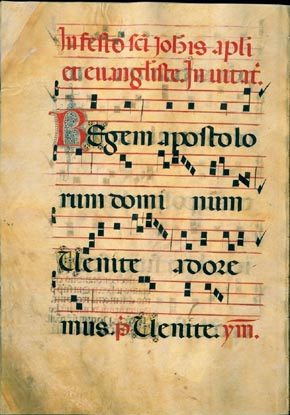 In festo sci Johis apli
et euangliste. In uitat.
Regem apostolo
rum domi num
Uenite adore
mus. p̄ Uenite. ym̄.